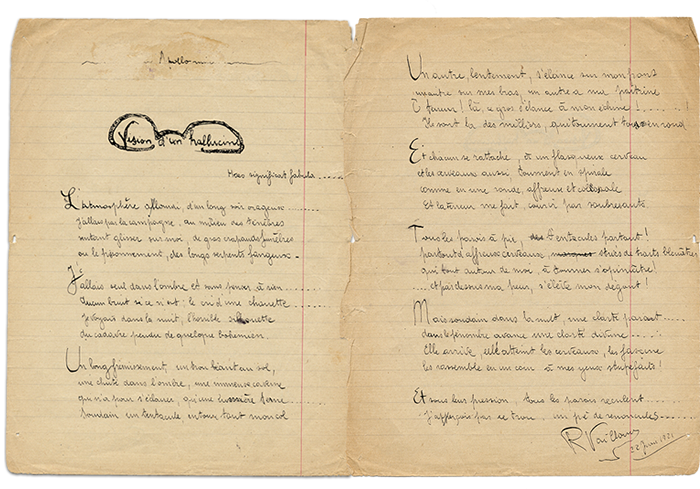 Apollo
Vision d'un halluciné
Hoec significat fabula ......
L'atmosphère alourdi, d'un long soir orageux
J'allais par la campagne, au milieu des ténèbres
sentant glisser sur moi, de gros crapauds funèbres
ou le frissonnement, des longs serpents fangeux.
J'allais seul dans l'ombre et sans penser à rien
Aucun bruit si ce n'est : le cri d'une chouette
Je voyais dans la nuit, l'horrible silhouette
du cadavre pendu de quelque bohémien.
Un long frémissement, un trou béant au sol,
une chute dans l'ombre, une immense caverne
qui n'a pour s'éclairer, qu'une terne
Soudain un tentacule, entourant mon col
Un autre, lentement, s'élance sur mon front
un autre sur mes bras, un autre a ma poitrine
O fureur ! là, ce gros s'élance à mon échine !
Ils sont là des milliers, qui tournent en rond
Et chacun se rattache, à un flasqueux cerveau
et les cerveaux aussi tournent en spirale
comme en une ronde, affreuse et collosale
Et la terreur me fait, courir par soubresauts.
Tous les parois à pic, des tentacules partout !
partout d'affreux cerveaux, striés de traits bleuâtres
qui tout autour de moi, à tourner s'opiniâtre !
et par dessus ma peur, s'élève mon dégout !
Mais soudain dans la nuit, une clarté parait
dans le pénombre avance une clarté divine
Elle arrive, elle atteint les cerveaux, les fascine
les rassemble en un cœur à mes yeux stupéfaits !
Et sous leur pression, tous les parois reculent
J'apperçois par ce trou un pré de renoncules
R Vailland
22 Juin 1921